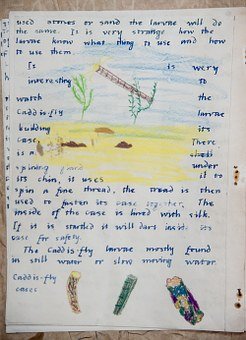 used stones or sand the larvae will do
the same. It is very strange how the
larvae know what thing to use and how
to use them.
It is very
interesting to
watch the
Caddis-fly larvae
building its
case. There
is a small
spining gland under
its chin, it uses it to
spin a fine thread, the thread is then
used to fasten its case together. The
inside of the case is lined with silk.
If it is startled it will dart inside its
case for safety.
The Caddis-fly larvae mostly found
in still water or slow moving water.
Caddis-fly
cases